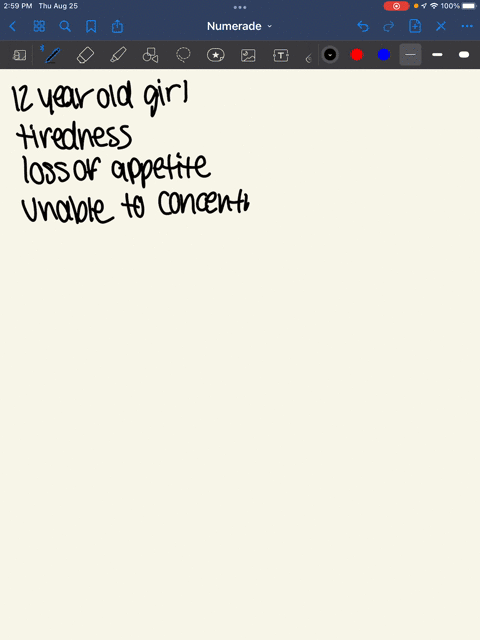 2:59 PM Thu Aug 25
100%
Numerade
12 year old girl
tiredness
loss of appetite
unable to